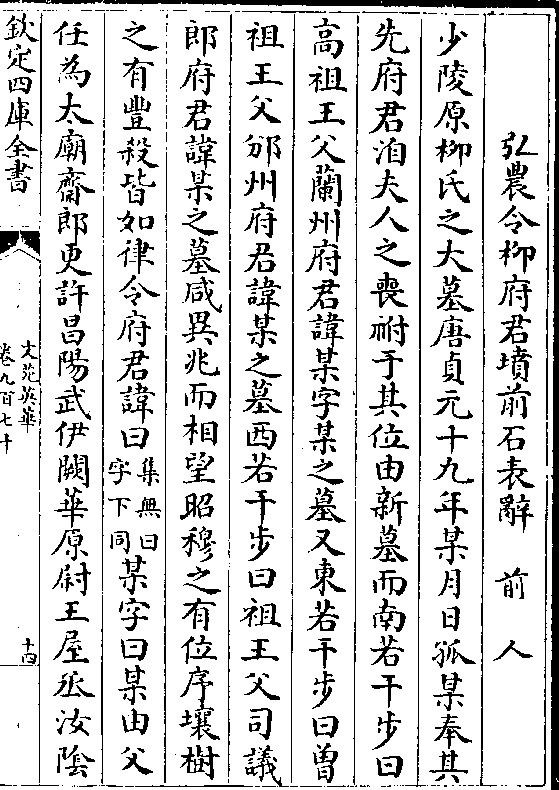 弘農令柳府君墳前石表辭　前人
少陵原柳氏之大墓唐貞元十九年某月日孤某奉其
先府君洎夫人之喪祔于其位由新墓而南若干步曰
高祖王父蘭州府君諱某字某之墓又東若干步曰曽
祖王父邠州府君諱某之墓西若干步曰祖王父司議
郎府君諱某之墓咸異兆而相望昭穆之有位序壤樹
之有豐殺皆如律令府君諱曰集無曰字下同某字曰某由父
任為太廟齋郎更許昌陽武伊闕華原尉王屋丞汝陰
欽定四庫全書
文苑英華
卷九百七十
十四